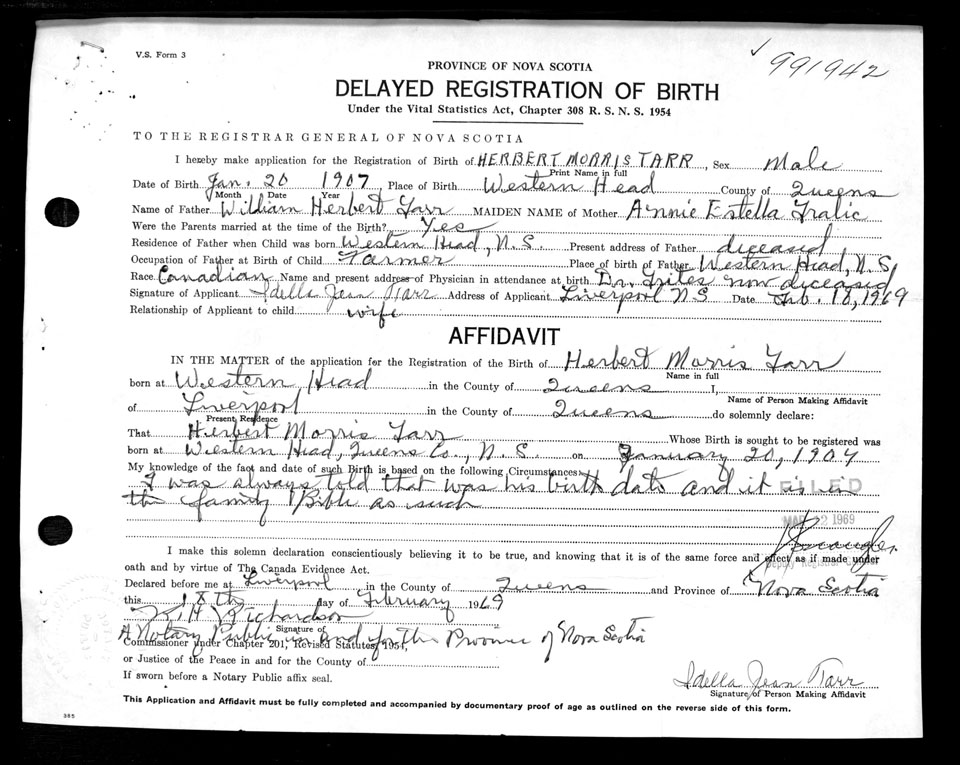 V.S. Form 3
991942
PROVINCE OF NOVA SCOTIA
DELAYED REGISTRATION OF BIRTH
Under the Vital Statistics Act, Chapter 308 R. S. N. S. 1954
TO THE REGISTRAR GENERAL OF NOVA SCOTIA
I hereby make application for the Registration of Birth of HERBERT MORRIS TARR, Sex Male
Print Name in full
Date of Birth Jan. 20 1907 Place of Birth Western Head County of Queens
Month Date Year
Name of Father William Herbert Tarr MAIDEN NAME of Mother Annie Estella Fralic
Were the Parents married at the time of the Birth? Yes
Residence of Father when Child was born Western Head, N.S. Present address of Father diceased
Occupation of Father at Birth of Child Farmer Place of birth of Father Western Head, N.S.
Race Canadian Name and present address of Physician in attendance at birth Dr. now diceased
Signature of Applicant Idella Jean Tarr Address of Applicant Liverpool NS Date Feb. 18, 1969
Relationship of Applicant to child wife
AFFIDAVIT
IN THE MATTER of the application for the Registration of the Birth of Herbert Morris Tarr
Name in full
born at Western Head in the County of Queens I,
Name of Person Making Affidavit
of Liverpool in the County of Queens do solemnly declare:
Present Residence
That Herbert Morris Tarr Whose Birth is sought to be registered was
born at Western Head, Queens Co., N.S. on January 20, 1907
My knowledge of the fact and date of such Birth is based on the following Circumstances
I was always told that was his birth date and it is in
the family Bible as such
FILED
1969
I make this solemn declaration conscientiously believing it to be true, and knowing that it is of the same force and effect as if made under
oath and by virtue of The Canada Evidence Act.
Declared before me at Liverpool in the County of Queens and Province of Nova Scotia
this 18th day of February 1969
Richardson
Signature of
A Notary Public in and for the Province of Nova Scotia
Commissioner under Chapter 201, Revised Statutes, 1954,
or Justice of the Peace in and for the County of
If sworn before a Notary Public affix seal.
Idella Jean Tarr
Signature of Person Making Affidavit
This Application and Affidavit must be fully completed and accompanied by documentary proof of age as outlined on the reverse side of this form.
385